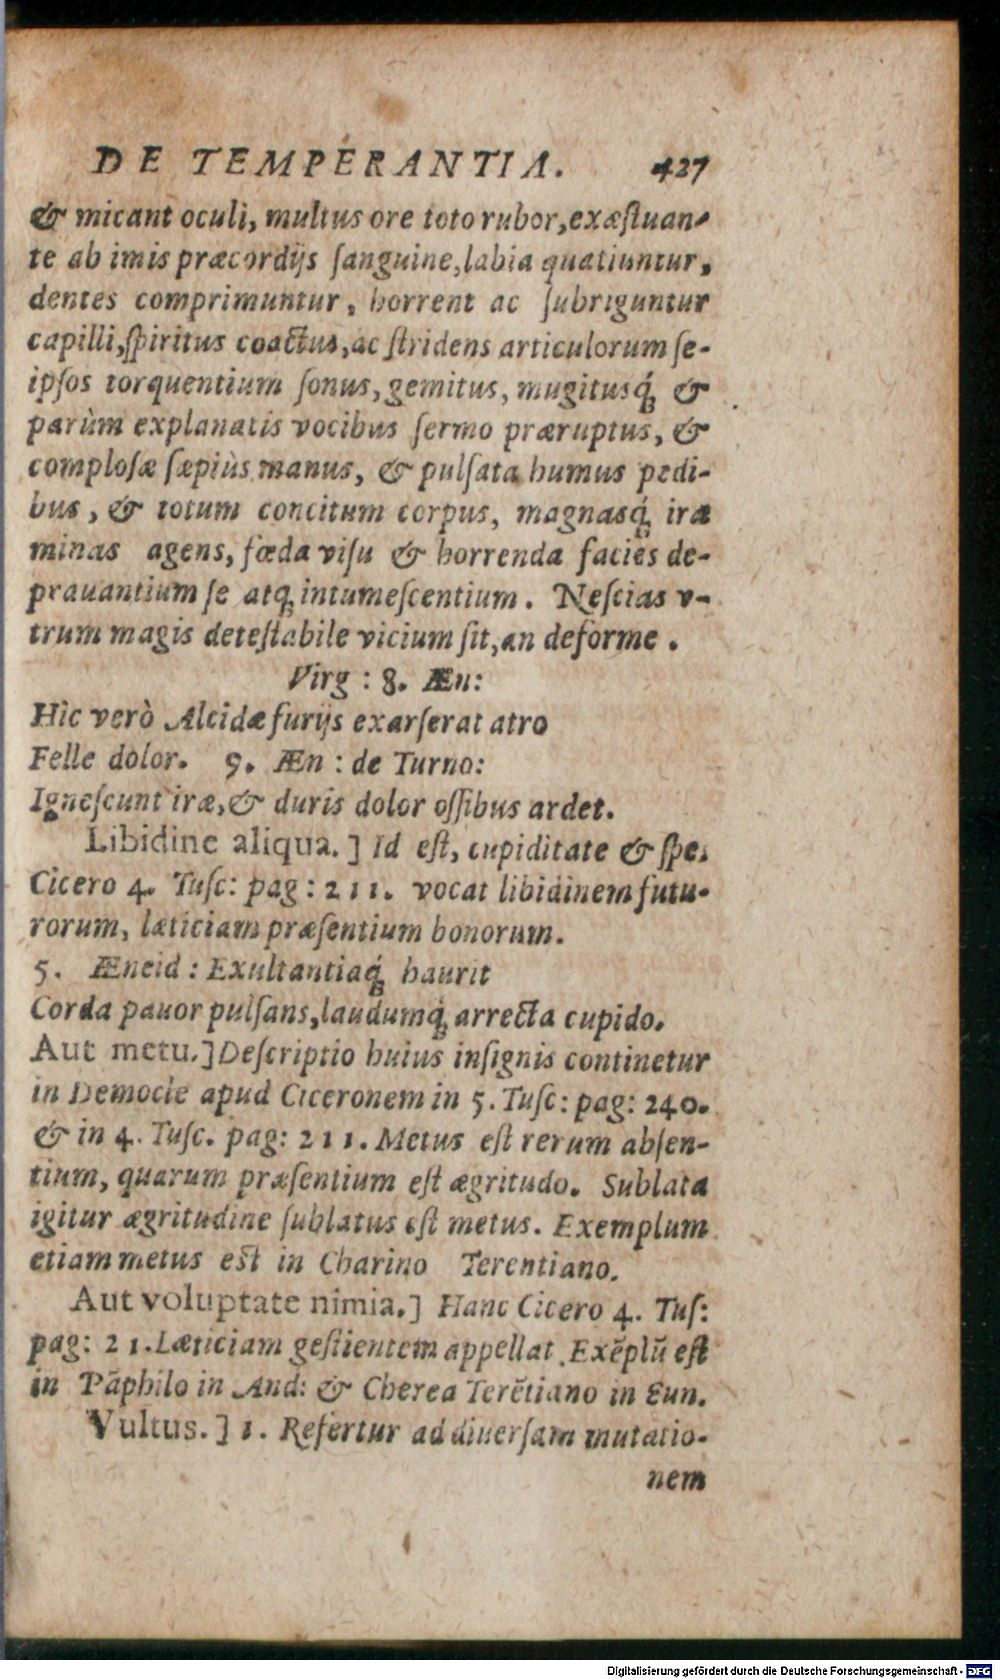 DE TEMPERANTIA. 427
& micant oculi, multus ore toto rubor, exæſtuan-
te ab imis præcordijs ſanguine, labia quatiuntur,
dentes comprimuntur, horrent ac ſubriguntur
capilli, ſpiritus coactus, ac ſtridens articulorum ſe-
ipſos torquentium ſonus, gemitus, mugitusq́; &
parùm explanatis vocibus ſermo præruptus, &
comploſæ ſæpiùs manus, & pulſata humus pedi-
bus, & totum concitum corpus, magnasq́; iræ
minas agens, fœda viſu & horrenda facies de-
prauantium ſe atq; intumeſcentium. Neſcias v-
trum magis deteſtabile vicium ſit, an deforme.
Virg: 8. Æn:
Hìc verò Alcidæ furijs exarſerat atro
Felle dolor. 9. Æn: de Turno:
Igneſcunt iræ, & duris dolor oſſibus ardet.
Libidine aliqua.] Id eſt, cupiditate & ſpe.
Cicero 4. Tuſc: pag: 211. vocat libidinem futu-
rorum, læticiam præſentium bonorum.
5. Æneid: Exultantiaq́; haurit
Corda pauor pulſans, laudumq́; arrecta cupido.
Aut metu.] Deſcriptio huius inſignis continetur
in Democle apud Ciceronem in 5. Tuſc: pag: 240.
& in 4. Tuſc. pag: 211. Metus eſt rerum abſen-
tium, quarum præſentium eſt ægritudo. Sublata
igitur ægritudine ſublatus eſt metus. Exemplum
etiam metus eſt in Charino Terentiano.
Aut voluptate nimia.] Hanc Cicero 4. Tuſ:
pag: 21. Læticiam geſtientem appellat. Exẽplũ eſt
in Pãphilo in And: & Cherea Terẽtiano in Eun.
Vultus.] 1. Refertur ad diuerſam mutatio-
nem
Digitalisierung gefördert durch die Deutsche Forschungsgemeinschaft - DFG